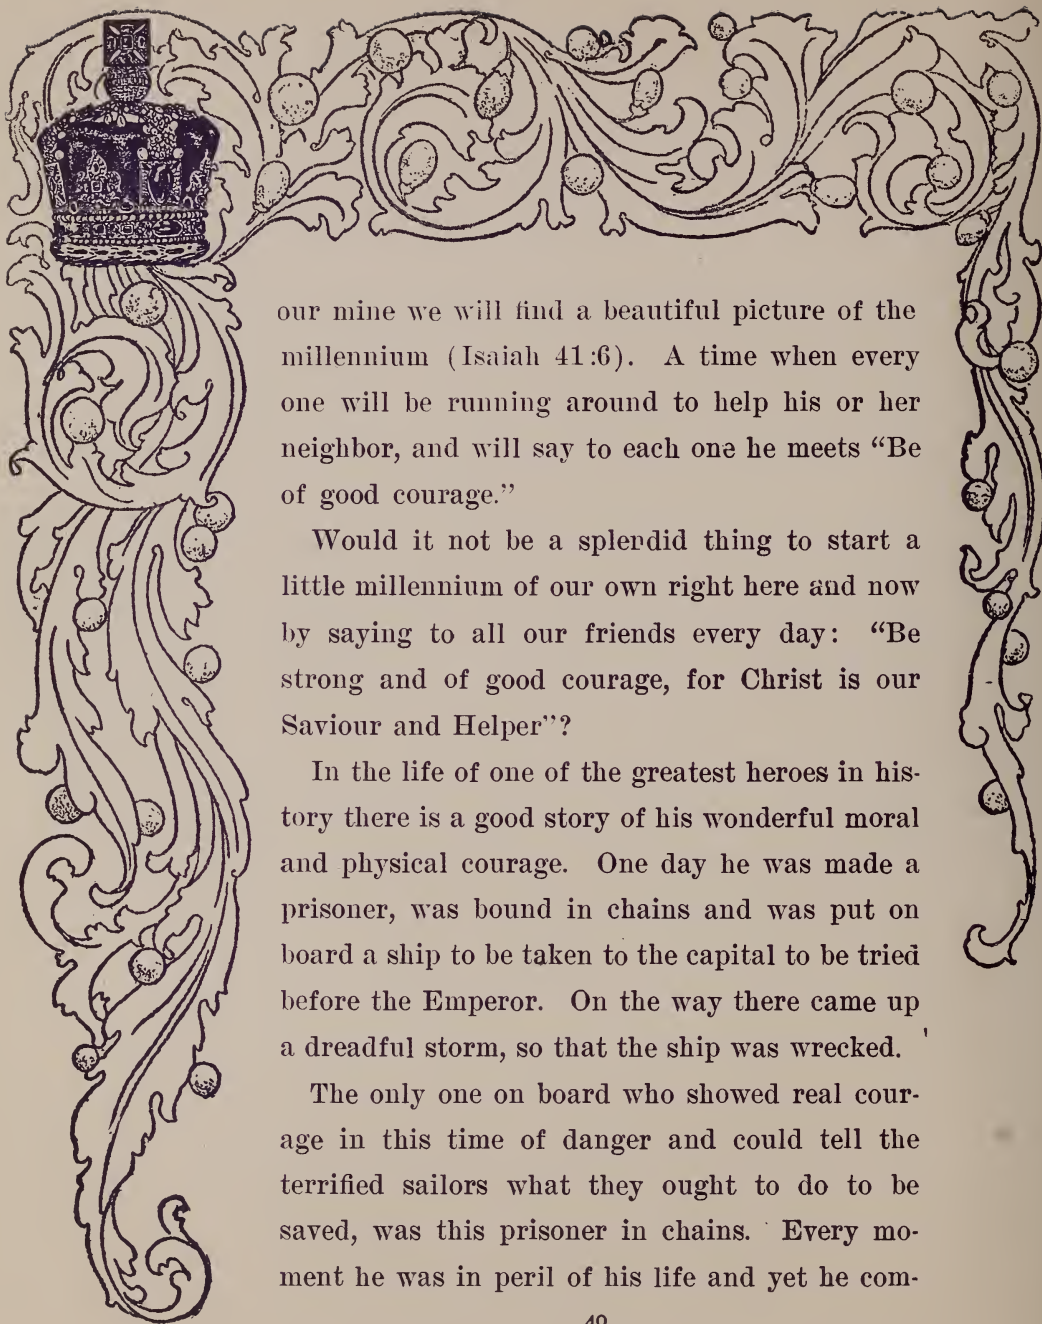 our mine we will find a beautiful picture of the
millennium (Isaiah 41:6). A time when every
one will be running around to help his or her
neighbor, and will say to each one he meets “Be
of good courage.”
Would it not be a splendid thing to start a
little millennium of our own right here and now
by saying to all our friends every day: “Be
strong and of good courage, for Christ is our
Saviour and Helper”?
In the life of one of the greatest heroes in his-
tory there is a good story of his wonderful moral
and physical courage. One day he was made a
prisoner, was bound in chains and was put on
board a ship to be taken to the capital to be tried
before the Emperor. On the way there came up
a dreadful storm, so that the ship was wrecked.
The only one on board who showed real cour-
age in this time of danger and could tell the
terrified sailors what they ought to do to be
saved, was this prisoner in chains. Every mo-
ment he was in peril of his life and yet he com-